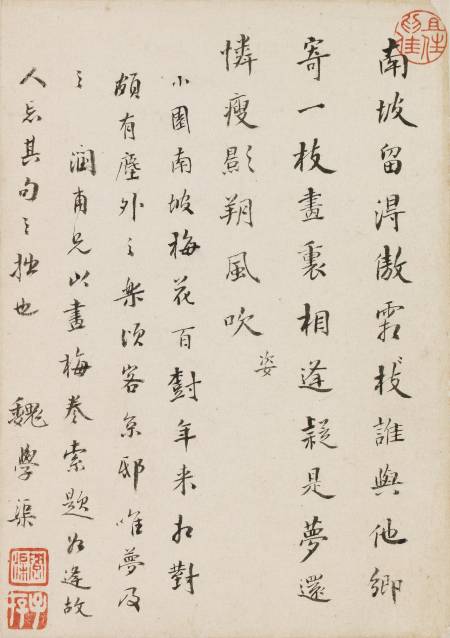 且住為佳
南坡留得傲霜枝誰與他鄉
寄一枝畫裏相逢疑是夢還
憐瘦影朔風吹
姿
小園南坡梅花百樹年來相對
頗有塵外之樂頃客京邸唯夢及
之潤甫兄以畫梅卷索題如逢故
人忘其句之拙也 魏學渠